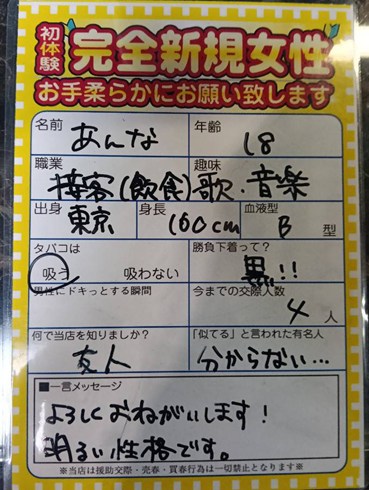 初体験 完全新規女性
お手柔らかにお願い致します
名前 あんな 年齢 18
職業 接客(飲食) 趣味 歌・音楽
出身 東京 身長 160cm 血液型 B 型
タバコは 吸う 吸わない 勝負下着って? 黒!!
男性にドキっとする瞬間 今までの交際人数 4 人
何で当店を知りましたか? 友人 「似てる」と言われた有名人 分からない…
■一言メッセージ
よろしくおねがいします!
明るい性格です。
※当店は援助交際・売春・買春行為は一切禁止となります※